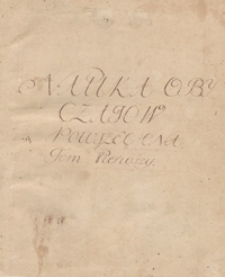 NAUKA OBY
CZAIOW
POWSZECHNA
Tom Pierwszy.